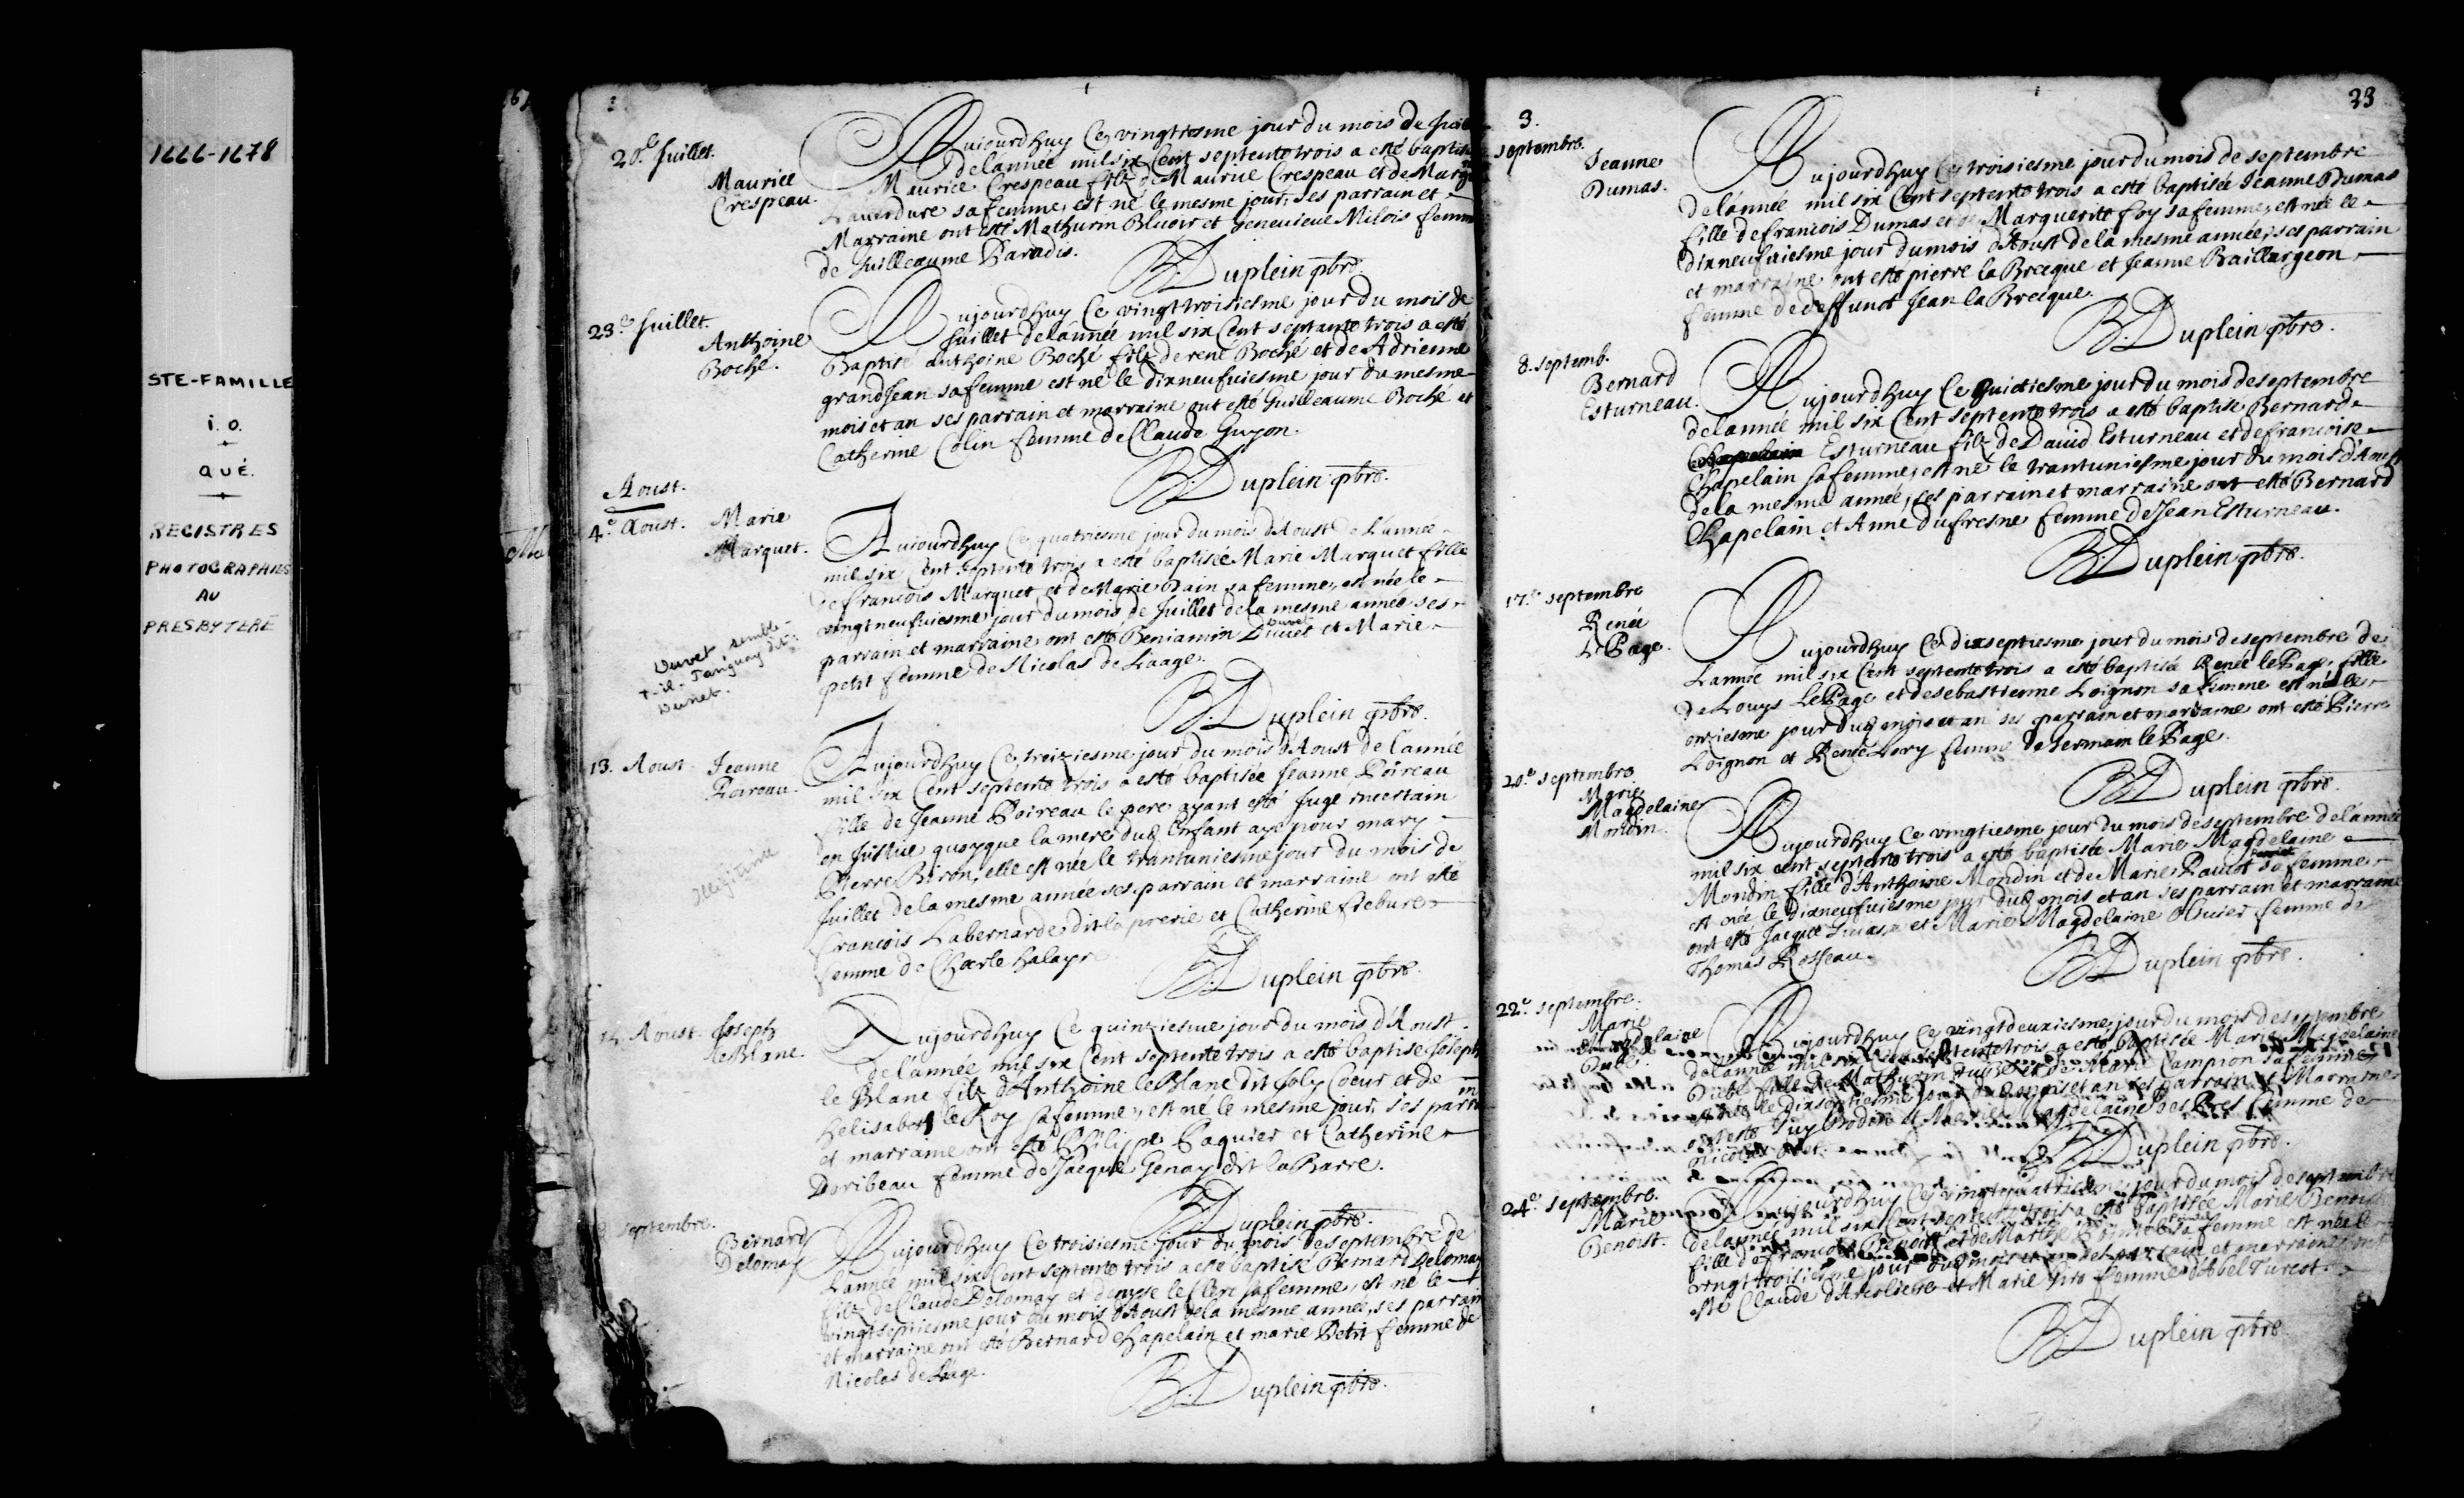 1666-1678
STE-FAMILLE
i. o.
QUÉ.
REGISTRES
PHOTOGRAPHIES
AU
PRESBYTERE
20.e Juillet.
Maurice
Crespeau.
Aujourdhuy Ce vingtiesme jour du mois de Juil
de lannée mil six Cent septente trois a esté baptisé
Maurice Crespeau filz de Maurice Crespeau et de Marg
Lauerdure sa femme, est né le mesme jour, ses parrain et
Marraine ont esté Mathurin et Geneuieue Milois femm
de Guilleaume Paradis.
B. Duplein ptbre.
23.e Juillet.
Anthoine
Boché.
Aujourdhuy Ce vingt troisiesme jour du mois de
Juillet de lannée mil six Cent septente trois a esté
Baptisé anthoine Boché filz de rené Boché et de Adrienne
grandJean sa femme est né le dixneufuiesme jour du mesme
mois et an ses parrain et marraine ont esté Guilleaume Boché et
Catherine Colin femme de Claude Guyon.
B. Duplein ptbre.
Aoust.
4.e Aoust.
Marie
Marquet.
Aujourdhuy Ce quatriesme jour du mois d'Aoust de L'année
mil six Cent septente trois a esté baptisée Marie Marquet fille
de francois Marquet et de Marie sa femme, est née le
vingt neufuiesme jour du mois de Juillet de la mesme année ses
parrain et marraine ont esté Beniamin Duuet et Marie
Duvet
petit femme de Nicolas de Laage.
Duvet, semble-
t-il. Tanguay dit:
Dunet.
B. Duplein ptbre.
13. Aoust.
Jeanne
Poireau.
Aujourdhuy Ce treiziesme jour du mois d'Aoust de l'année
mil six Cent septente trois a esté baptisée Jeanne Poireau
fille de Jeanne Poireau le pere ayant esté Jugé incertain
en Justice quoyque la mere dud. Enfant aye pour mary
Pierre Biron, elle est née le trentuniesme jour du mois de
Juillet de la mesme année ses parrain et marraine ont esté
francois Labernarde dit la prerie et Catherine
femme de Charle
illegitime
B. Duplein ptbre.
Aoust.
Joseph
leBlanc.
Aujourdhuy Ce quinziesme jour du mois d'Aoust
de l'année mil six Cent septente trois a esté baptisé Joseph
le Blanc filz d'Anthoine le Blanc dit Joly Coeur et de
Helisabeth le Roy sa femme, est né le mesme jour, ses parrin
et marraine ont esté Philippe Paquier et Catherine
Doribeau femme de Jacque Genay dit la Barre.
B. Duplein ptbre.
septembre.
Bernard
Delomay
Aujourdhuy Ce troisiesme jour du mois de septembre de
Lannée mil six Cent septente trois a esté baptisé Bernard Delomay
filz de Claude Delomay et denyse le Clerc sa femme, est né le
vingtseptiesme jour du mois d'Aoust de la mesme année, ses parrain
et marraine ont esté Bernard Chapelain et marie Petit femme de
Nicolas de Laage.
B. Duplein ptbre.
23
3.
septembre.
Jeanne
Dumas.
Aujourdhuy Ce troisiesme jour du mois de septembre
de lannée mil six Cent septente trois a esté baptisée Jeanne Dumas
fille de francois Dumas et de Marguerite foy sa femme, est née le
dixneufuiesme jour du mois d'Aoust de la mesme année, ses parrain
et marraine ont esté pierre la Brecque et Jeanne Baillargeon
femme de deffunct Jean la Brecque.
B. Duplein ptbre.
8. septemb.
Bernard
Esturneau.
Aujourdhuy Ce huictiesme jour du mois de septembre
de lannée mil six Cent septente trois a esté baptisé Bernard
Chapelain Esturneau filz de Dauid Esturneau et de francoise
Chapelain sa femme, est né le trantuniesme jour du mois d'Aoust
de la mesme année, ses parrain et marraine ont esté Bernard
Chapelain et Anne dufresne femme de Jean Esturneau.
B. Duplein ptbre.
17.e septembre
Renée
le Page.
Aujourdhuy Ce dixseptiesme jour du mois de septembre de
Lannée mil six Cent septente trois a esté baptisée Renée le Page fille
de Louys LePage et de sebastienne Loignon sa femme est née le
onziesme jour dud mois et an ses parrain et marraine ont esté Pierre
Loignon et Renée Lory femme de Germain le Page.
B. Duplein ptbre.
20.e septembre
Marie
Magdelaine
Mondin.
Aujourdhuy Ce vingtiesme jour du mois de septembre de lannée
mil six cent septente trois a esté baptisée Marie Magdelaine
Mondin fille d'Anthoine Mondin et de Marie sa femme
est née le dixneufuiesme jour dud mois et an ses parrain et marraine
ont esté Jacque et Marie Magdelaine Oliuier femme de
Thomas Rosseau.
B. Duplein ptbre.
22.e septembre.
Marie
Magdelaine
Dubé.
Aujourdhuy Ce vingtdeuxiesme jour du mois de septembre
de lannée mil six Cent septente trois a esté baptisée Marie Magdelaine
Dubé fille de Mathurin Dubé et de Marie Campion sa femme
est née le dixseptiesme jour dud mois et an ses parrain et Marraine
ont esté Guy Boderé et Marie Magdelaine Des Pres femme de
Nicolas
B. Duplein ptbre.
24.e septembre.
Marie
Benoist.
Aujourdhuy Ce vingtquatriesme jour du mois de septembre
de lannée mil six Cent septente trois a esté baptisée Marie Benoist
fille de francois Benoist et de Marthe sa femme est née le
vingt troisiesme jour dud mois et an ses parrain et marraine ont
esté Claude et Marie Giro femme d'Abel Turcot.
B. Duplein ptbre.